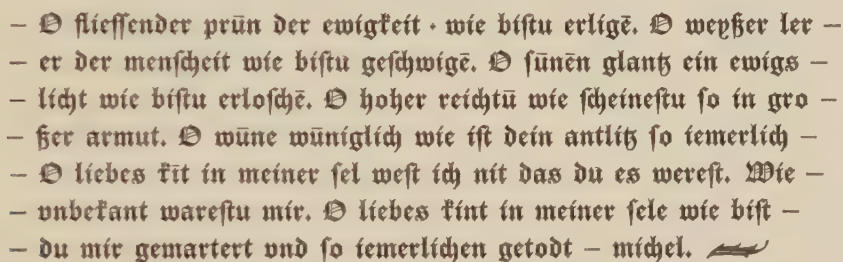 – O flieſſender prūn der ewigkeit · wie biſtu erligē. O weyßer ler –
– er der menſcheit wie biſtu geſchwigē. O ſūnēn glantz ein ewigs –
– licht wie biſtu erloſchē. O hoher reichtū wie ſcheineſtu ſo in gro –
– ßer armut. O wūne wūniglich wie iſt dein antlitz ſo iemerlich –
– O liebes kīt in meiner ſel weſt ich nit das du es wereſt. Wie –
– vnbekant wareſtu mir. O liebes kint in meiner ſele wie biſt –
– du mir gemartert vnd ſo iemerlichen getodt – michel.